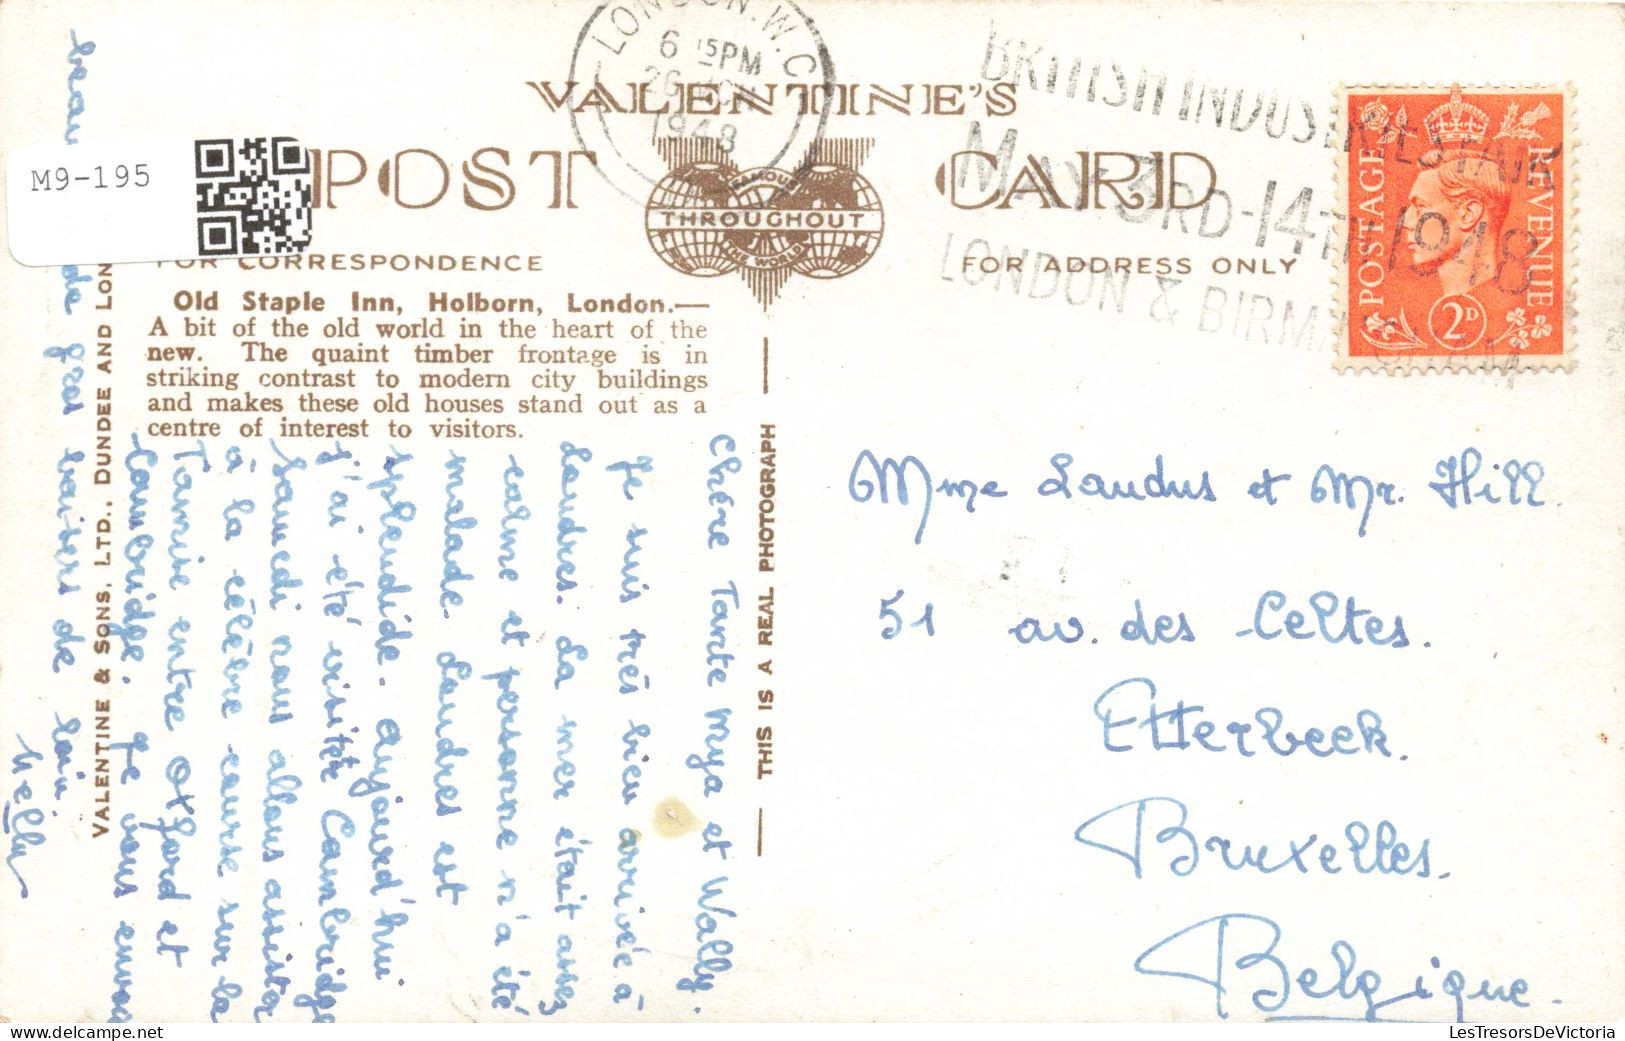 M9-195
VALENTINE'S
POST CARD
FAMOUS
THROUGHOUT
THE WORLD
FOR CORRESPONDENCE
FOR ADDRESS ONLY
LONDON. W.C
6 15PM
26
1948
BRITISH INDUSTRIES FAIR
MAY 3RD-14TH 1948
LONDON & BIRMINGHAM
POSTAGE
REVENUE
2D
Old Staple Inn, Holborn, London.—
A bit of the old world in the heart of the
new. The quaint timber frontage is in
striking contrast to modern city buildings
and makes these old houses stand out as a
centre of interest to visitors.
VALENTINE & SONS, LTD., DUNDEE AND LON
THIS IS A REAL PHOTOGRAPH
Chère Tante Mya et Wally.
Je suis très bien arrivée à
Londres. La mer était assez
calme et personne n'a été
malade. Londres est
splendide. Aujourd'hui
j'ai été visité Cambridge
Samedi nous allons assister
à la célèbre course sur la
Tamise entre Oxford et
Cambridge. Je vous envoie
beau de gros baisers de loin.
Nelly
Mme Laudus et Mr. Hill.
51 av. des Celtes.
Etterbeek.
Bruxelles.
Belgique.
LesTresorsDeVictoria